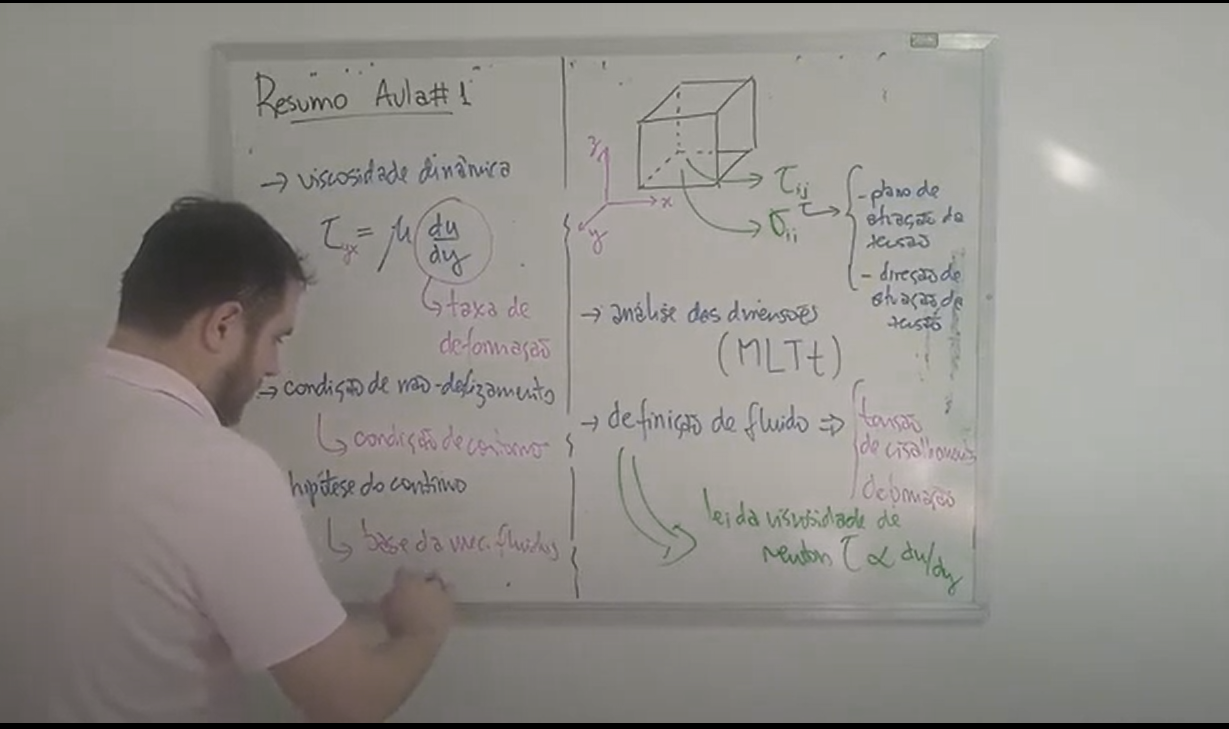 Resumo Aula #1
→ viscosidade dinâmica
τyx = μ du/dy
↳ taxa de
deformação
→ condição de não-deslizamento
↳ condição de contorno
hipótese do contínuo
↳ base da mec. fluidos
z
x
y
τij
σii
- plano de
atuação da
tensão
- direção de
atuação da
tensão
→ análise das dimensões
(MLTt)
→ definição de fluido ⇒
tensão
de cisalhamento
deformação
lei da viscosidade de
newton τ ∝ du/dy